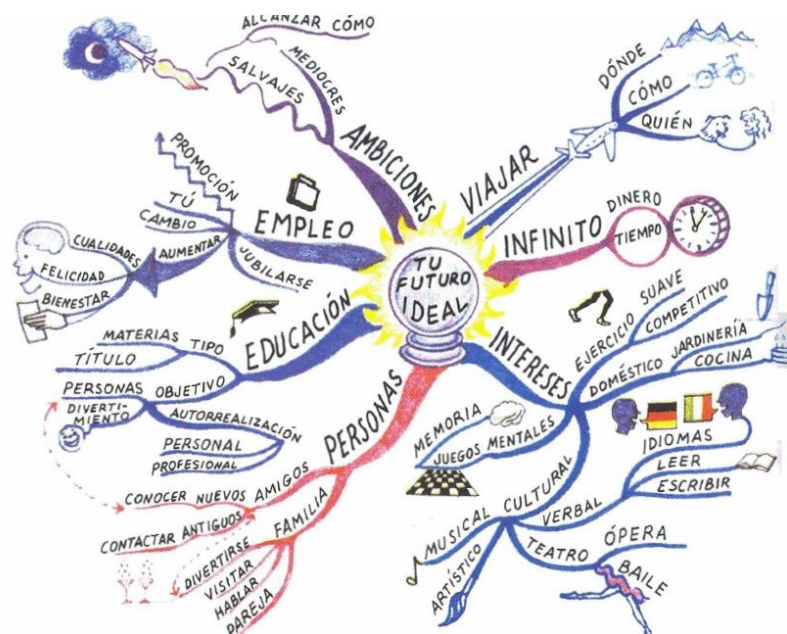 TU
FUTURO
IDEAL
AMBICIONES
MEDIOCRES
SALVAJES
ALCANZAR CÓMO
VIAJAR
DÓNDE
CÓMO
QUIÉN
INFINITO
DINERO
TIEMPO
INTERESES
EJERCICIO
SUAVE
COMPETITIVO
DOMÉSTICO
JARDINERÍA
COCINA
MEMORIA
JUEGOS MENTALES
CULTURAL
VERBAL
IDIOMAS
LEER
ESCRIBIR
TEATRO
ÓPERA
BAILE
MUSICAL
ARTÍSTICO
PERSONAS
AMIGOS
CONOCER NUEVOS
CONTACTAR ANTIGUOS
FAMILIA
DIVERTIRSE
VISITAR
HABLAR
PAREJA
EDUCACIÓN
TIPO
MATERIAS
TÍTULO
OBJETIVO
PERSONAS
DIVERTI-
MIENTO
AUTORREALIZACIÓN
PERSONAL
PROFESIONAL
EMPLEO
PROMOCIÓN
TÚ
CAMBIO
AUMENTAR
CUALIDADES
FELICIDAD
BIENESTAR
JUBILARSE